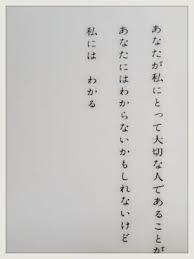 あなたが私にとって大切な人であることが
あなたにはわからないかもしれないけど
私には わかる